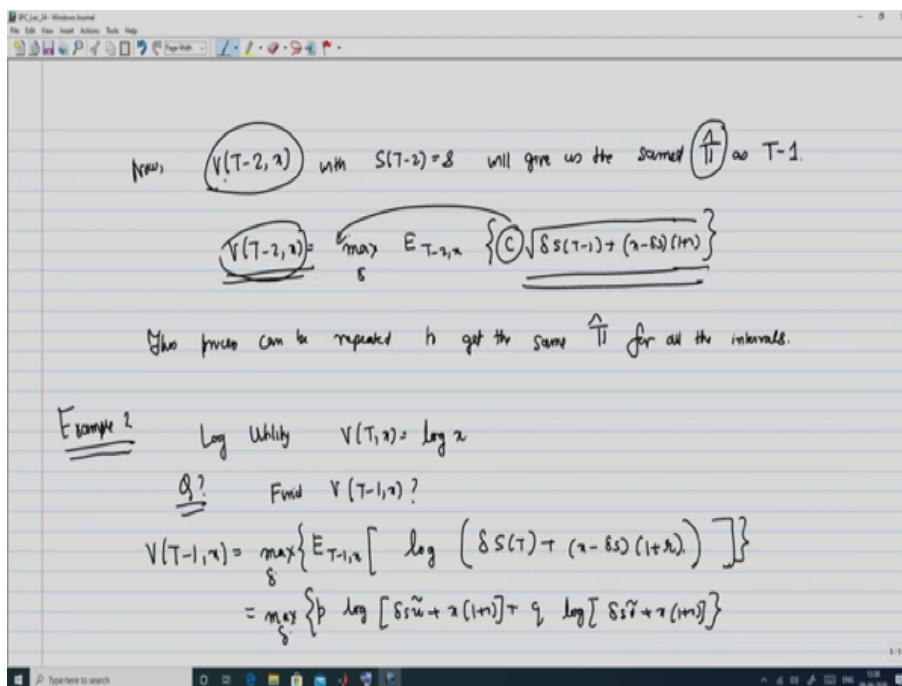 SPC_Lec_24 - Windows Journal
File Edit View Insert Actions Tools Help
Page Width
Now, V(T-2, x) with S(T-2) = s will give us the same π̂ as T-1.
V(T-2, x) = max_δ E_{T-2,x} { C √(δ S(T-1) + (x-δs)(1+r)) }
This process can be repeated to get the same π̂ for all the intervals.
Example 2 Log Utility V(T,x) = log x
Q? Find V(T-1,x)?
V(T-1,x) = max_δ { E_{T-1,x} [ log ( δ S(T) + (x-δs)(1+r) ) ] }
= max_δ { p log [δsũ + x(1+r)] + q log [δsṽ + x(1+r)] }
1/1
Type here to search
12:38
ENG